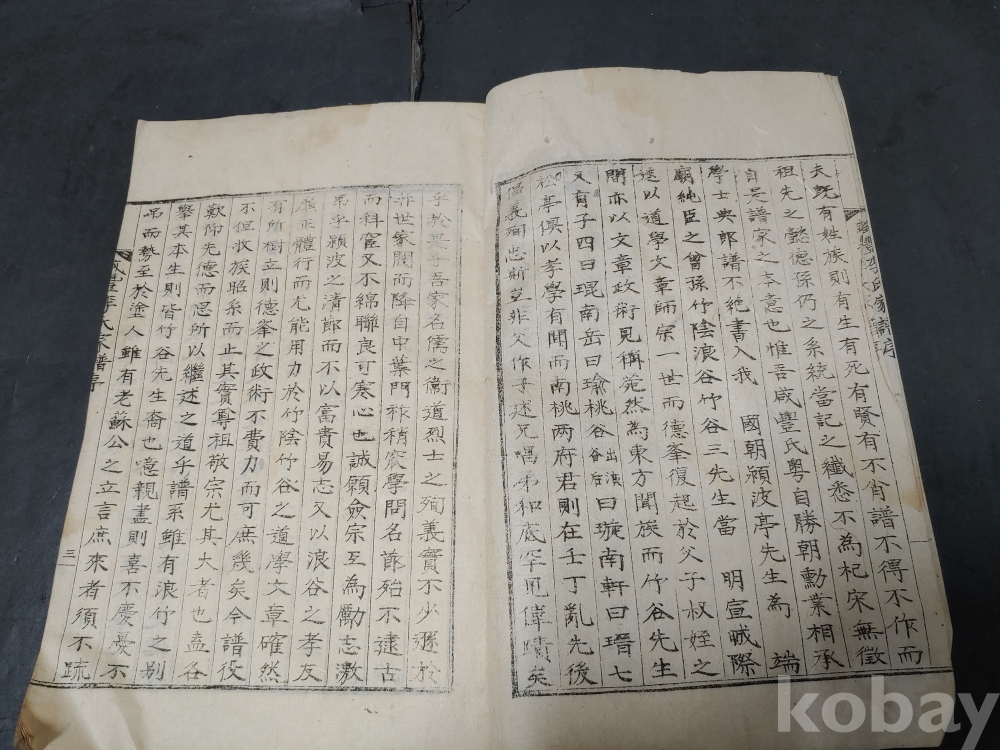 咸豐李氏家譜序
夫旣有姓族則有生有死有賢有不肖譜不得不作而
祖先之懿德孫仍之系統當記之纖悉不爲杞宋無徵
自是譜家之本意也惟吾咸豐氏粤自勝朝勳業相承
學士典郎譜不絶書入我 國朝潁波亭先生爲 端
廟純臣之曾孫竹陰浪谷竹谷三先生當 明宣
際遠以道學文章師宗一世而德峯復起於父子叔姪之
間亦以文章政術見稱菀然爲東方聞族而竹谷先生
又有子四曰琨南岳曰瑜桃谷出后曰璇南軒曰瑨七
松亭俱以孝學有聞而南桃两府君則在壬丁亂先後
倡義殉忠斯豈非父作子述兄唱弟和底罕見偉蹟矣
乎於是乎吾家名儒之衛道烈士之殉義實不少遜於
非世家閥而降自中葉門祚稍衰學問名節殆不逮古
而科宦又不綿聯良可寒心也誠願僉宗互爲勵志激
昻乎潁波之清郎而不以富貴易志又以浪谷之孝友
嚴正體行而尤能用力於竹陰竹谷之道學文章確然
有所樹立則德峯之政術不費力而可庶幾矣今譜役
不徃收族昭系而止其實尊祖敬宗尤其大者也盍各
歎仰先德而思所以繼述之道乎譜系雖有浪竹之别
擧其本生則皆竹谷先生裔也噫親盡則喜不慶憂不
吊而勢至於塗人雖有老蘇公之立言庶來者須不踈
咸豐李氏家譜序
三
kobay